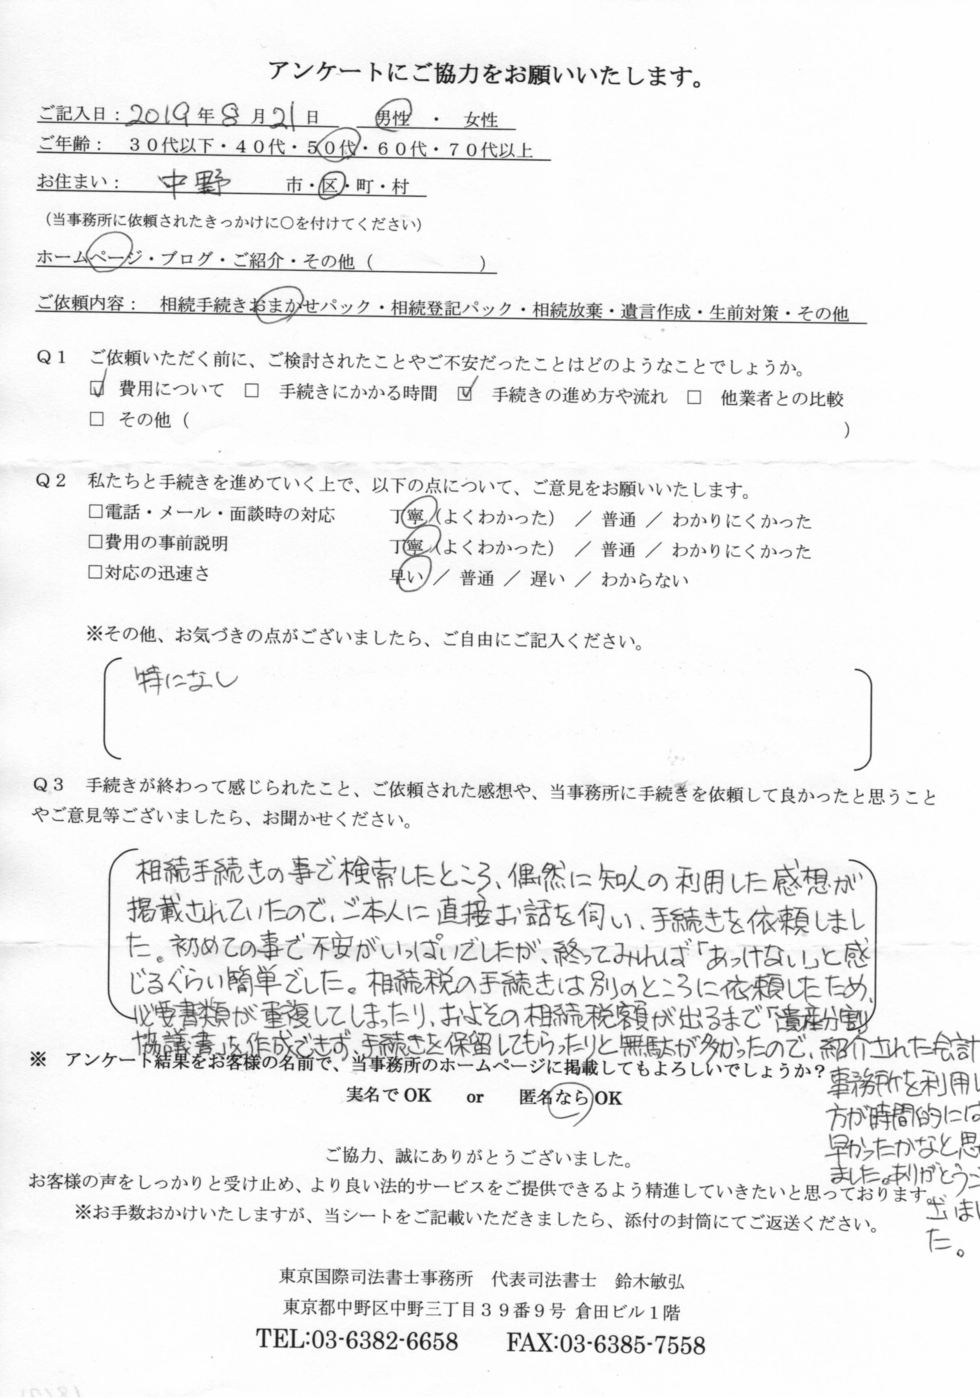 アンケートにご協力をお願いいたします。
ご記入日：2019年8月21日 男性 ・ 女性
ご年齢： 30代以下・40代・50代・60代・70代以上
お住まい： 中野 市・区・町・村
（当事務所に依頼されたきっかけに○を付けてください）
ホームページ・ブログ・ご紹介・その他（ ）
ご依頼内容： 相続手続きおまかせパック・相続登記パック・相続放棄・遺言作成・生前対策・その他
Q1 ご依頼いただく前に、ご検討されたことやご不安だったことはどのようなことでしょうか。
☑ 費用について □ 手続きにかかる時間 ☑ 手続きの進め方や流れ □ 他業者との比較
□ その他（ ）
Q2 私たちと手続きを進めていく上で、以下の点について、ご意見をお願いいたします。
□電話・メール・面談時の対応 丁寧（よくわかった） ／ 普通 ／ わかりにくかった
□費用の事前説明 丁寧（よくわかった） ／ 普通 ／ わかりにくかった
□対応の迅速さ 早い ／ 普通 ／ 遅い ／ わからない
※その他、お気づきの点がございましたら、ご自由にご記入ください。
特になし
Q3 手続きが終わって感じられたこと、ご依頼された感想や、当事務所に手続きを依頼して良かったと思うこと
やご意見等ございましたら、お聞かせください。
相続手続きの事で検索したところ、偶然に知人の利用した感想が
掲載されていたので、ご本人に直接お話を伺い、手続きを依頼しまし
た。初めての事で不安がいっぱいでしたが、終ってみれば「あっけない」と感
じるぐらい簡単でした。相続税の手続きは別のところに依頼したため、
必要書類が重複してしまったり、およその相続税額が出るまで「遺産分割
協議書」を作成できず、手続きを保留してもらったりと無駄が多かったので、紹介された会計
事務所を利用し
方が時間的には
早かったかなと思
ました。ありがとうご
※ アンケート結果をお客様の名前で、当事務所のホームページに掲載してもよろしいでしょうか？
実名でOK or 匿名ならOK
ご協力、誠にありがとうございました。
お客様の声をしっかりと受け止め、より良い法的サービスをご提供できるよう精進していきたいと思っております。
※お手数おかけいたしますが、当シートをご記載いただきましたら、添付の封筒にてご返送ください。
た。
東京国際司法書士事務所 代表司法書士 鈴木敏弘
東京都中野区中野三丁目39番9号 倉田ビル1階
TEL:03-6382-6658 FAX:03-6385-7558